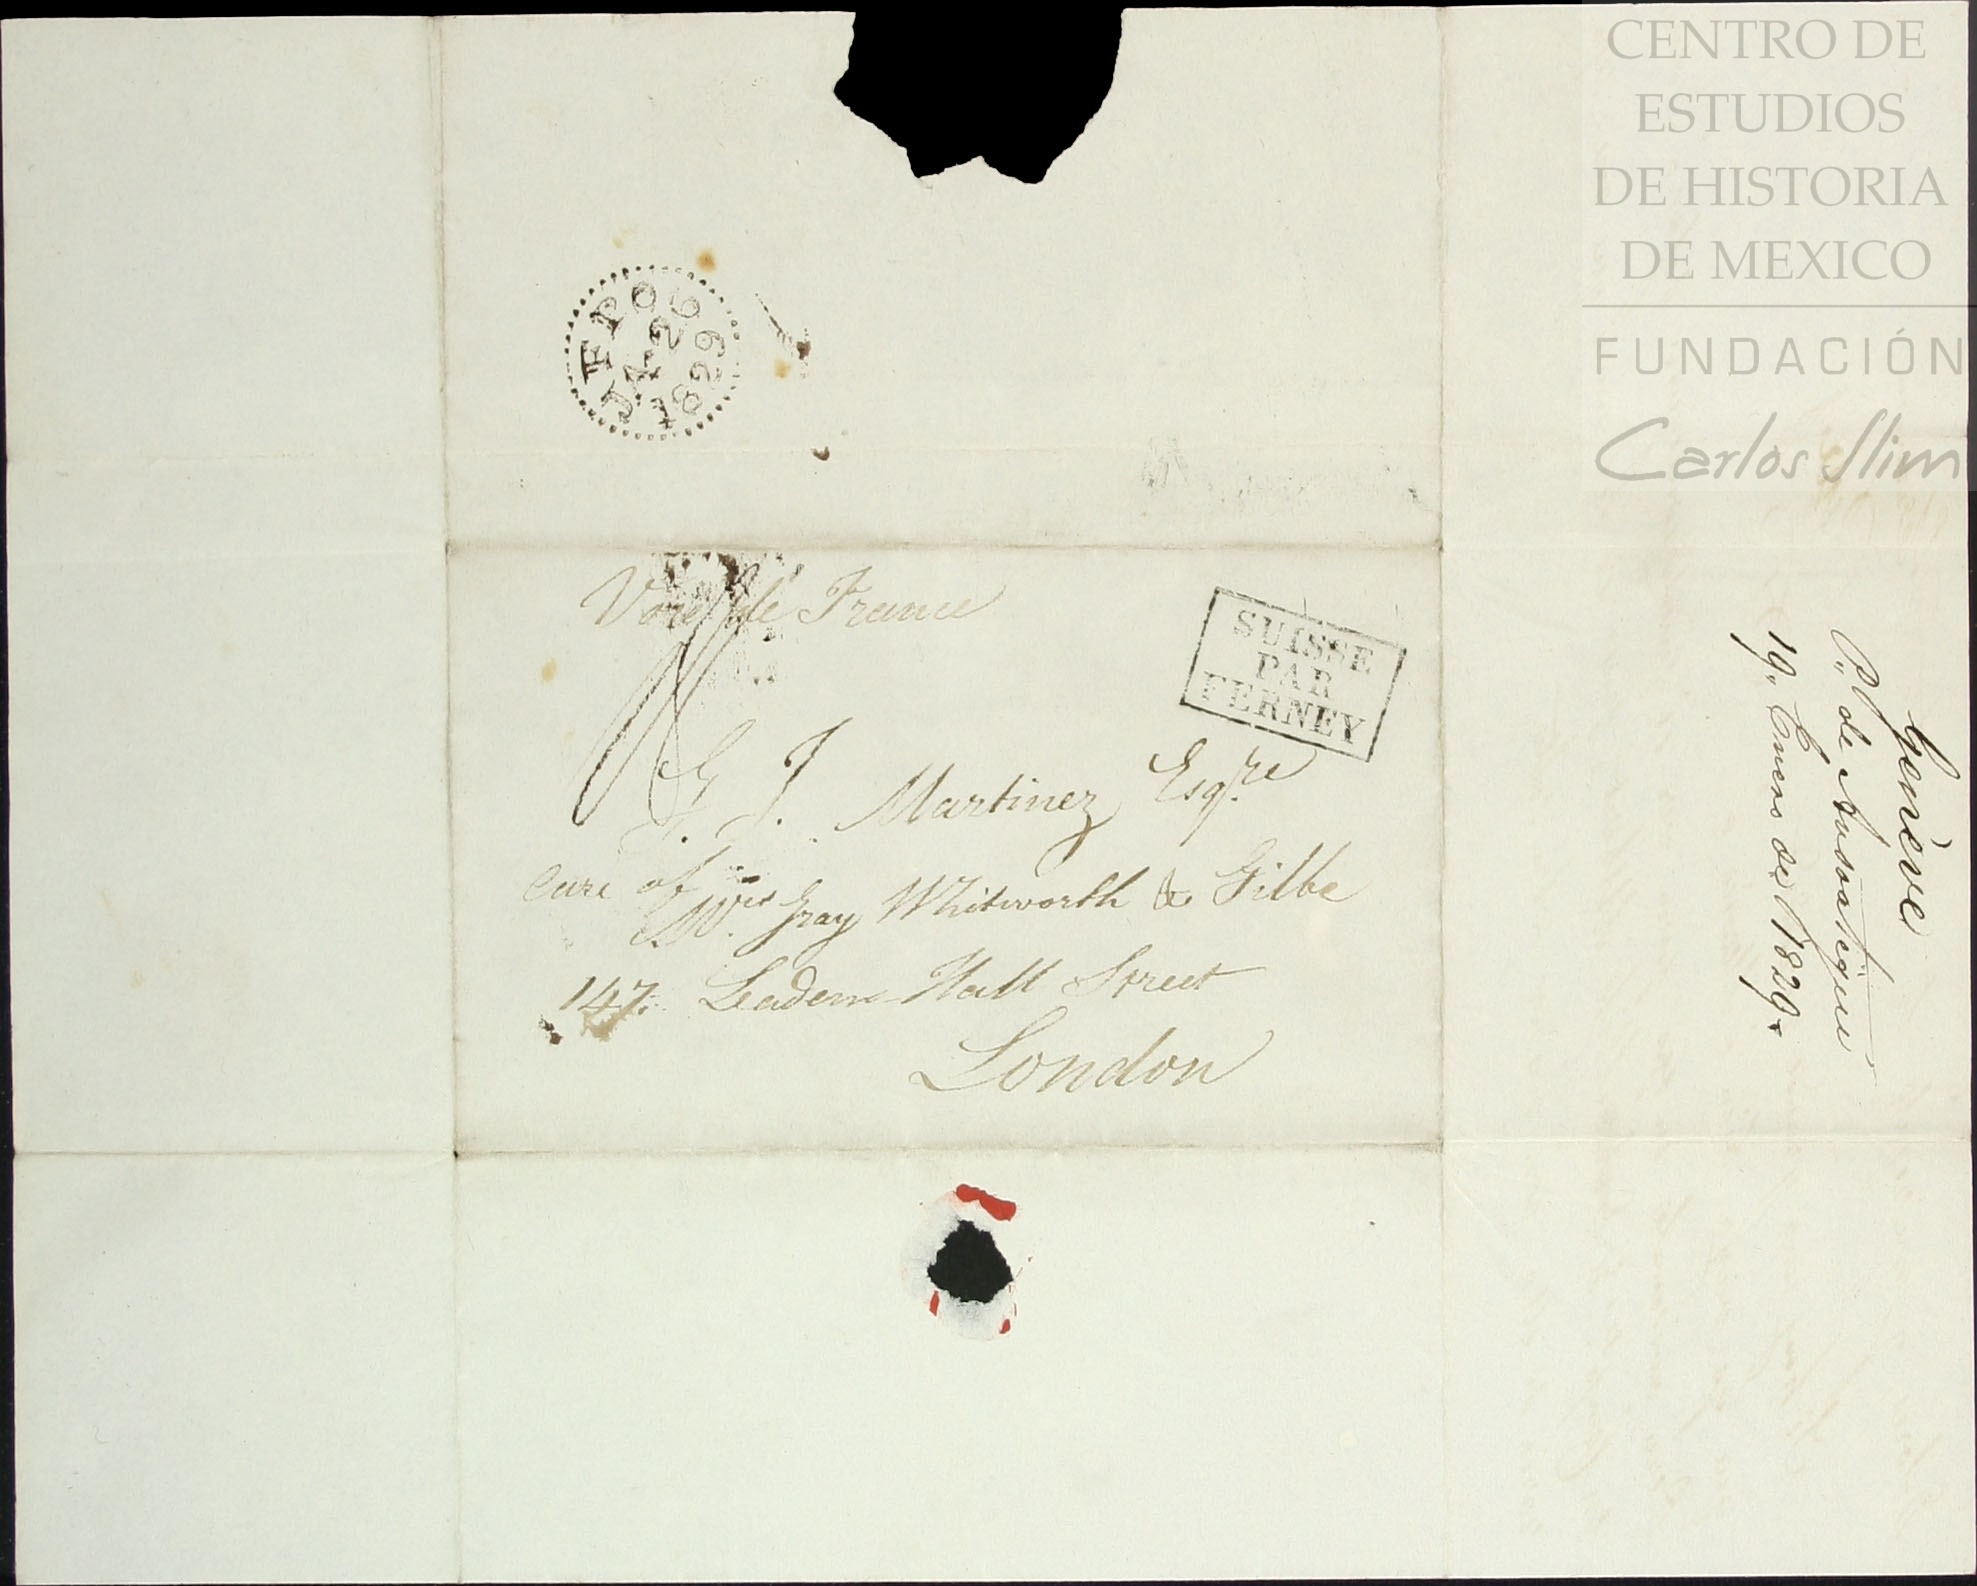 CENTRO DE
ESTUDIOS
DE HISTORIA
DE MEXICO
FUNDACIÓN
Carlos Slim
FPO
JA·26
1829
Voie de France
SUISSE
PAR
FERNEY
J. Martinez Esq.re
Care of
M.rs Gray Whitworth & Gilbe
147. Leaden-Hall Street
London
Genève
P. de
19. Enero de 1829.